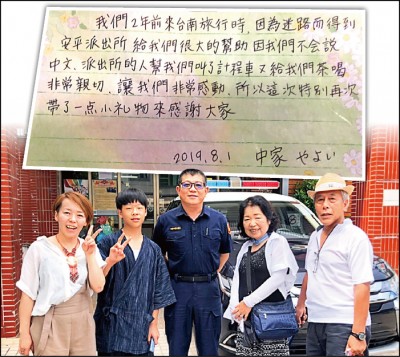 我們2年前來台南旅行時，因為迷路而得到
安平派出所 給我們很大的幫助 因我們不会說
中文、派出所的人幫我們叫了計程車又給我們茶喝
非常親切，讓我們非常感動，所以這次特別再次
帶了一点小礼物來感謝大家
2019.8.1 中家 やよい